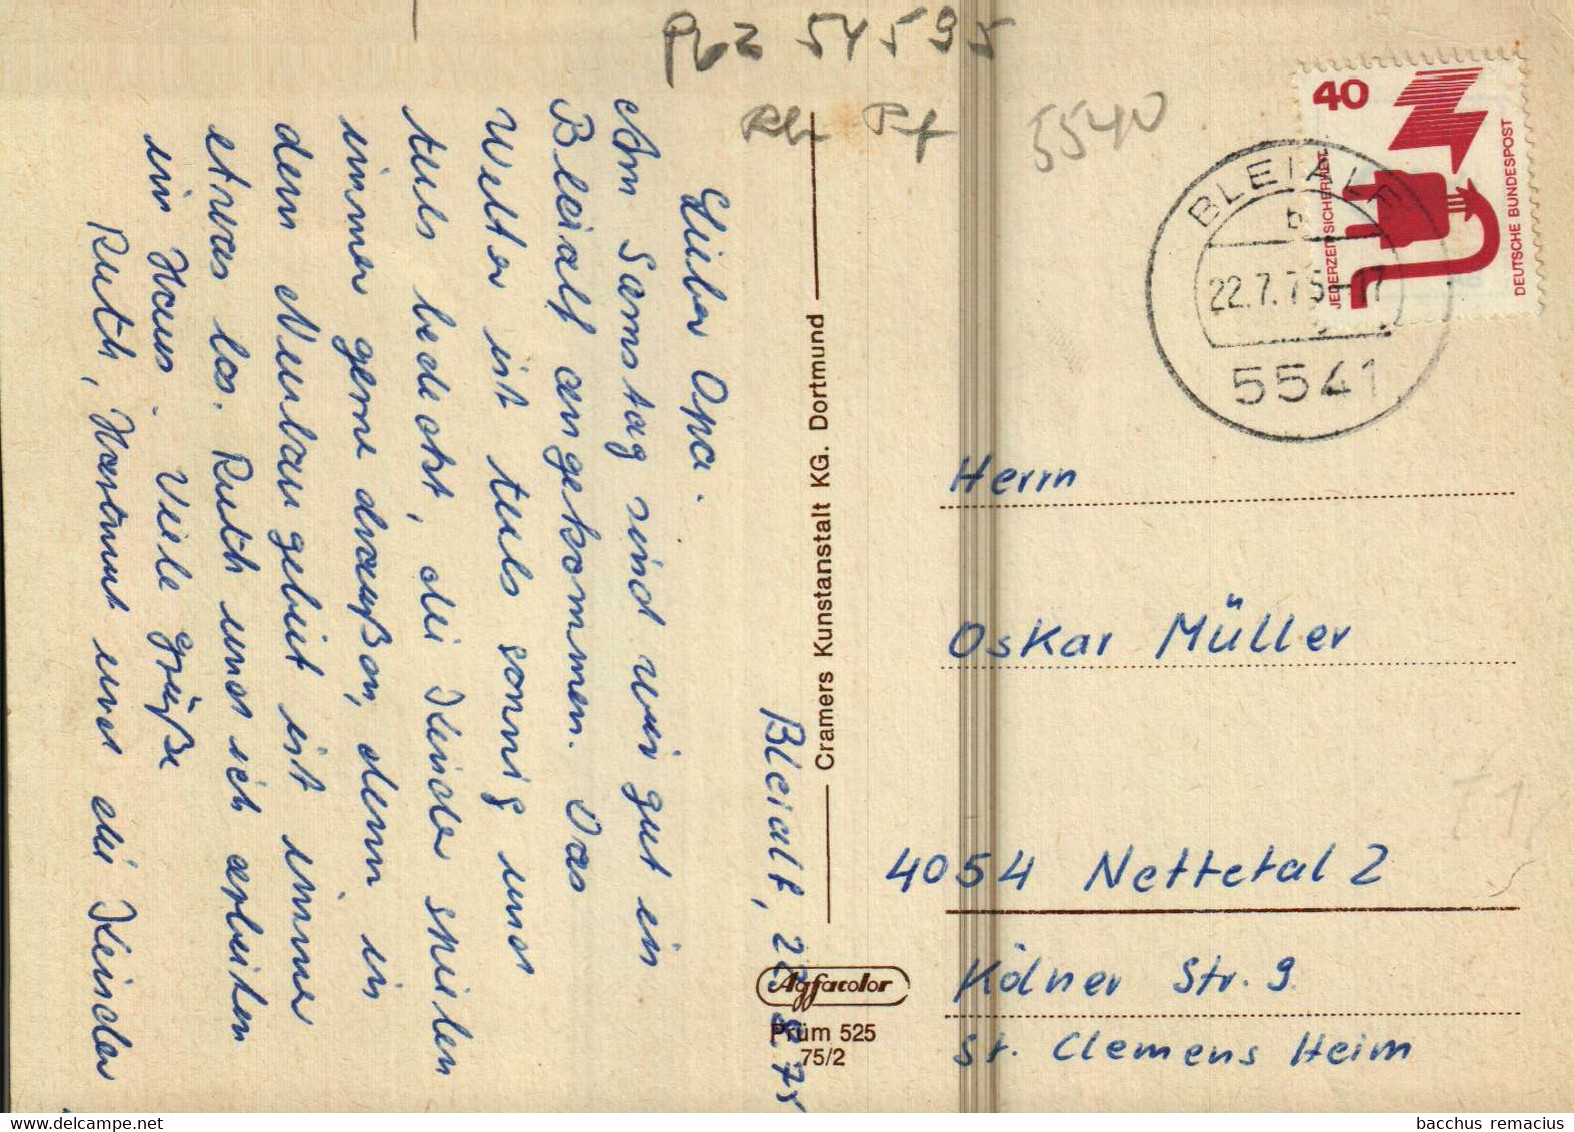 PLZ 54595
Rh Pf 5540
40
JEDERZEIT SICHERHEIT
DEUTSCHE BUNDESPOST
BLEIALF
b
22.7.75-17
5541
Bleialf, 22.7.75
Lieber Opa.
Am Samstag sind wir gut in
Bleialf angekommen. Das
Wetter ist teils sonnig und
teils bedeckt, die Kinder spielen
immer gerne draußen, denn in
dem Neubaugebiet ist immer
etwas los. Ruth und ich arbeiten
im Haus. Viele Grüße
Ruth, Hartmut und die Kinder
Cramers Kunstanstalt KG. Dortmund
Agfacolor
Prüm 525
75/2
Herrn
Oskar Müller
4054 Nettetal 2
Kölner Str. 9
St. Clemens Heim
bacchus remacius